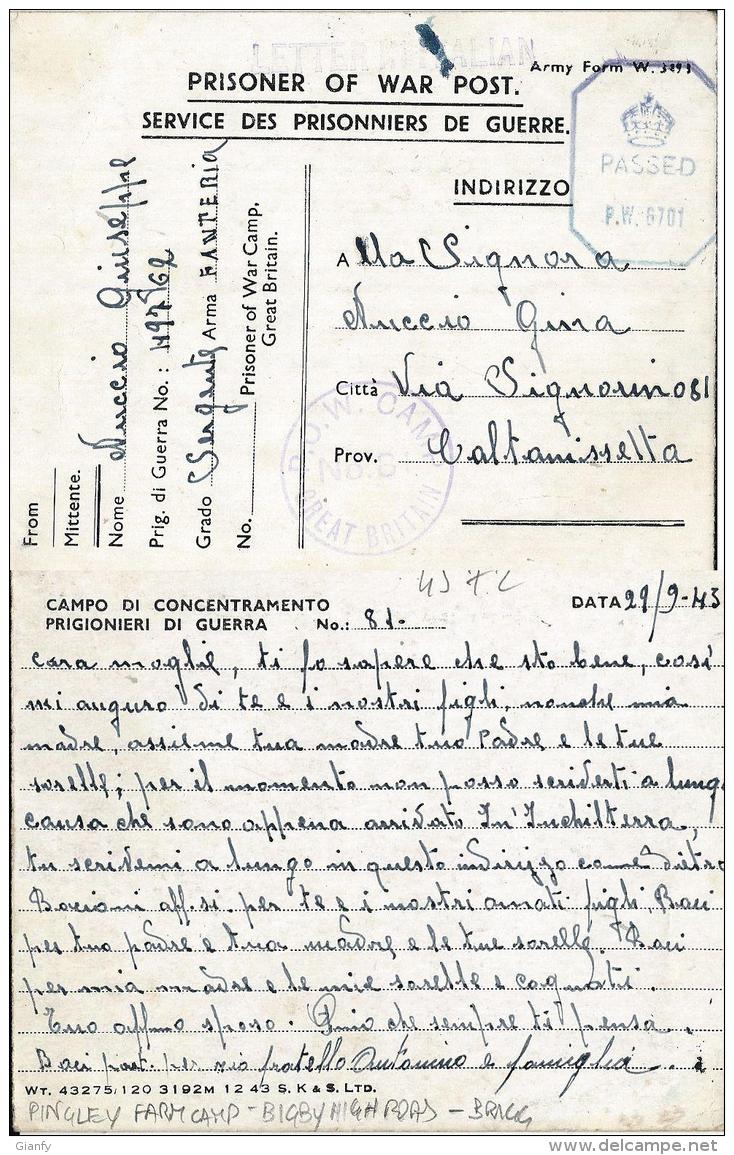 LETTER IN ITALIAN
Army Form W. 3493
PRISONER OF WAR POST.
SERVICE DES PRISONNIERS DE GUERRE.
PASSED
P.W. 6701
INDIRIZZO
Alla Signora
Nuccio Gina
Città Via Signorino 81
Prov. Caltanissetta
P.O.W. CAMP
No. 6
GREAT BRITAIN
From
Mittente.
Nome Nuccio Giuseppe
Prig. di Guerra No.:
Grado Sergente Arma FANTERIA
No. Prisoner of War Camp,
Great Britain.
CAMPO DI CONCENTRAMENTO
PRIGIONIERI DI GUERRA No.: 81-
DATA 29/9-43
cara moglie, ti fo sapere che sto bene, così
mi auguro di te e i nostri figli, nonche mia
madre, assieme tua madre tuo Padre e le tue
sorelle; per il momento non posso scriverti a lungo
causa che sono appena arrivato In' Inchilterra,
tu scrivemi a lungo in questo indirizzo come dietro
Bacioni aff.si. per te e i nostri amati figli, Baci
per tuo padre e tua madre e le tue sorelle. Baci
per mia madre e le mie sorelle e cognati.
Tuo affmo sposo. che sempre ti pensa.
Baci part. per zio fratello Antonino e famiglia.
WT. 43275/120 3192M 12 43 S. K & S. LTD.
PINGLEY FARM CAMP - BIGBY HIGH ROAD - BRIGG
Gianfy
www.delcampe.net